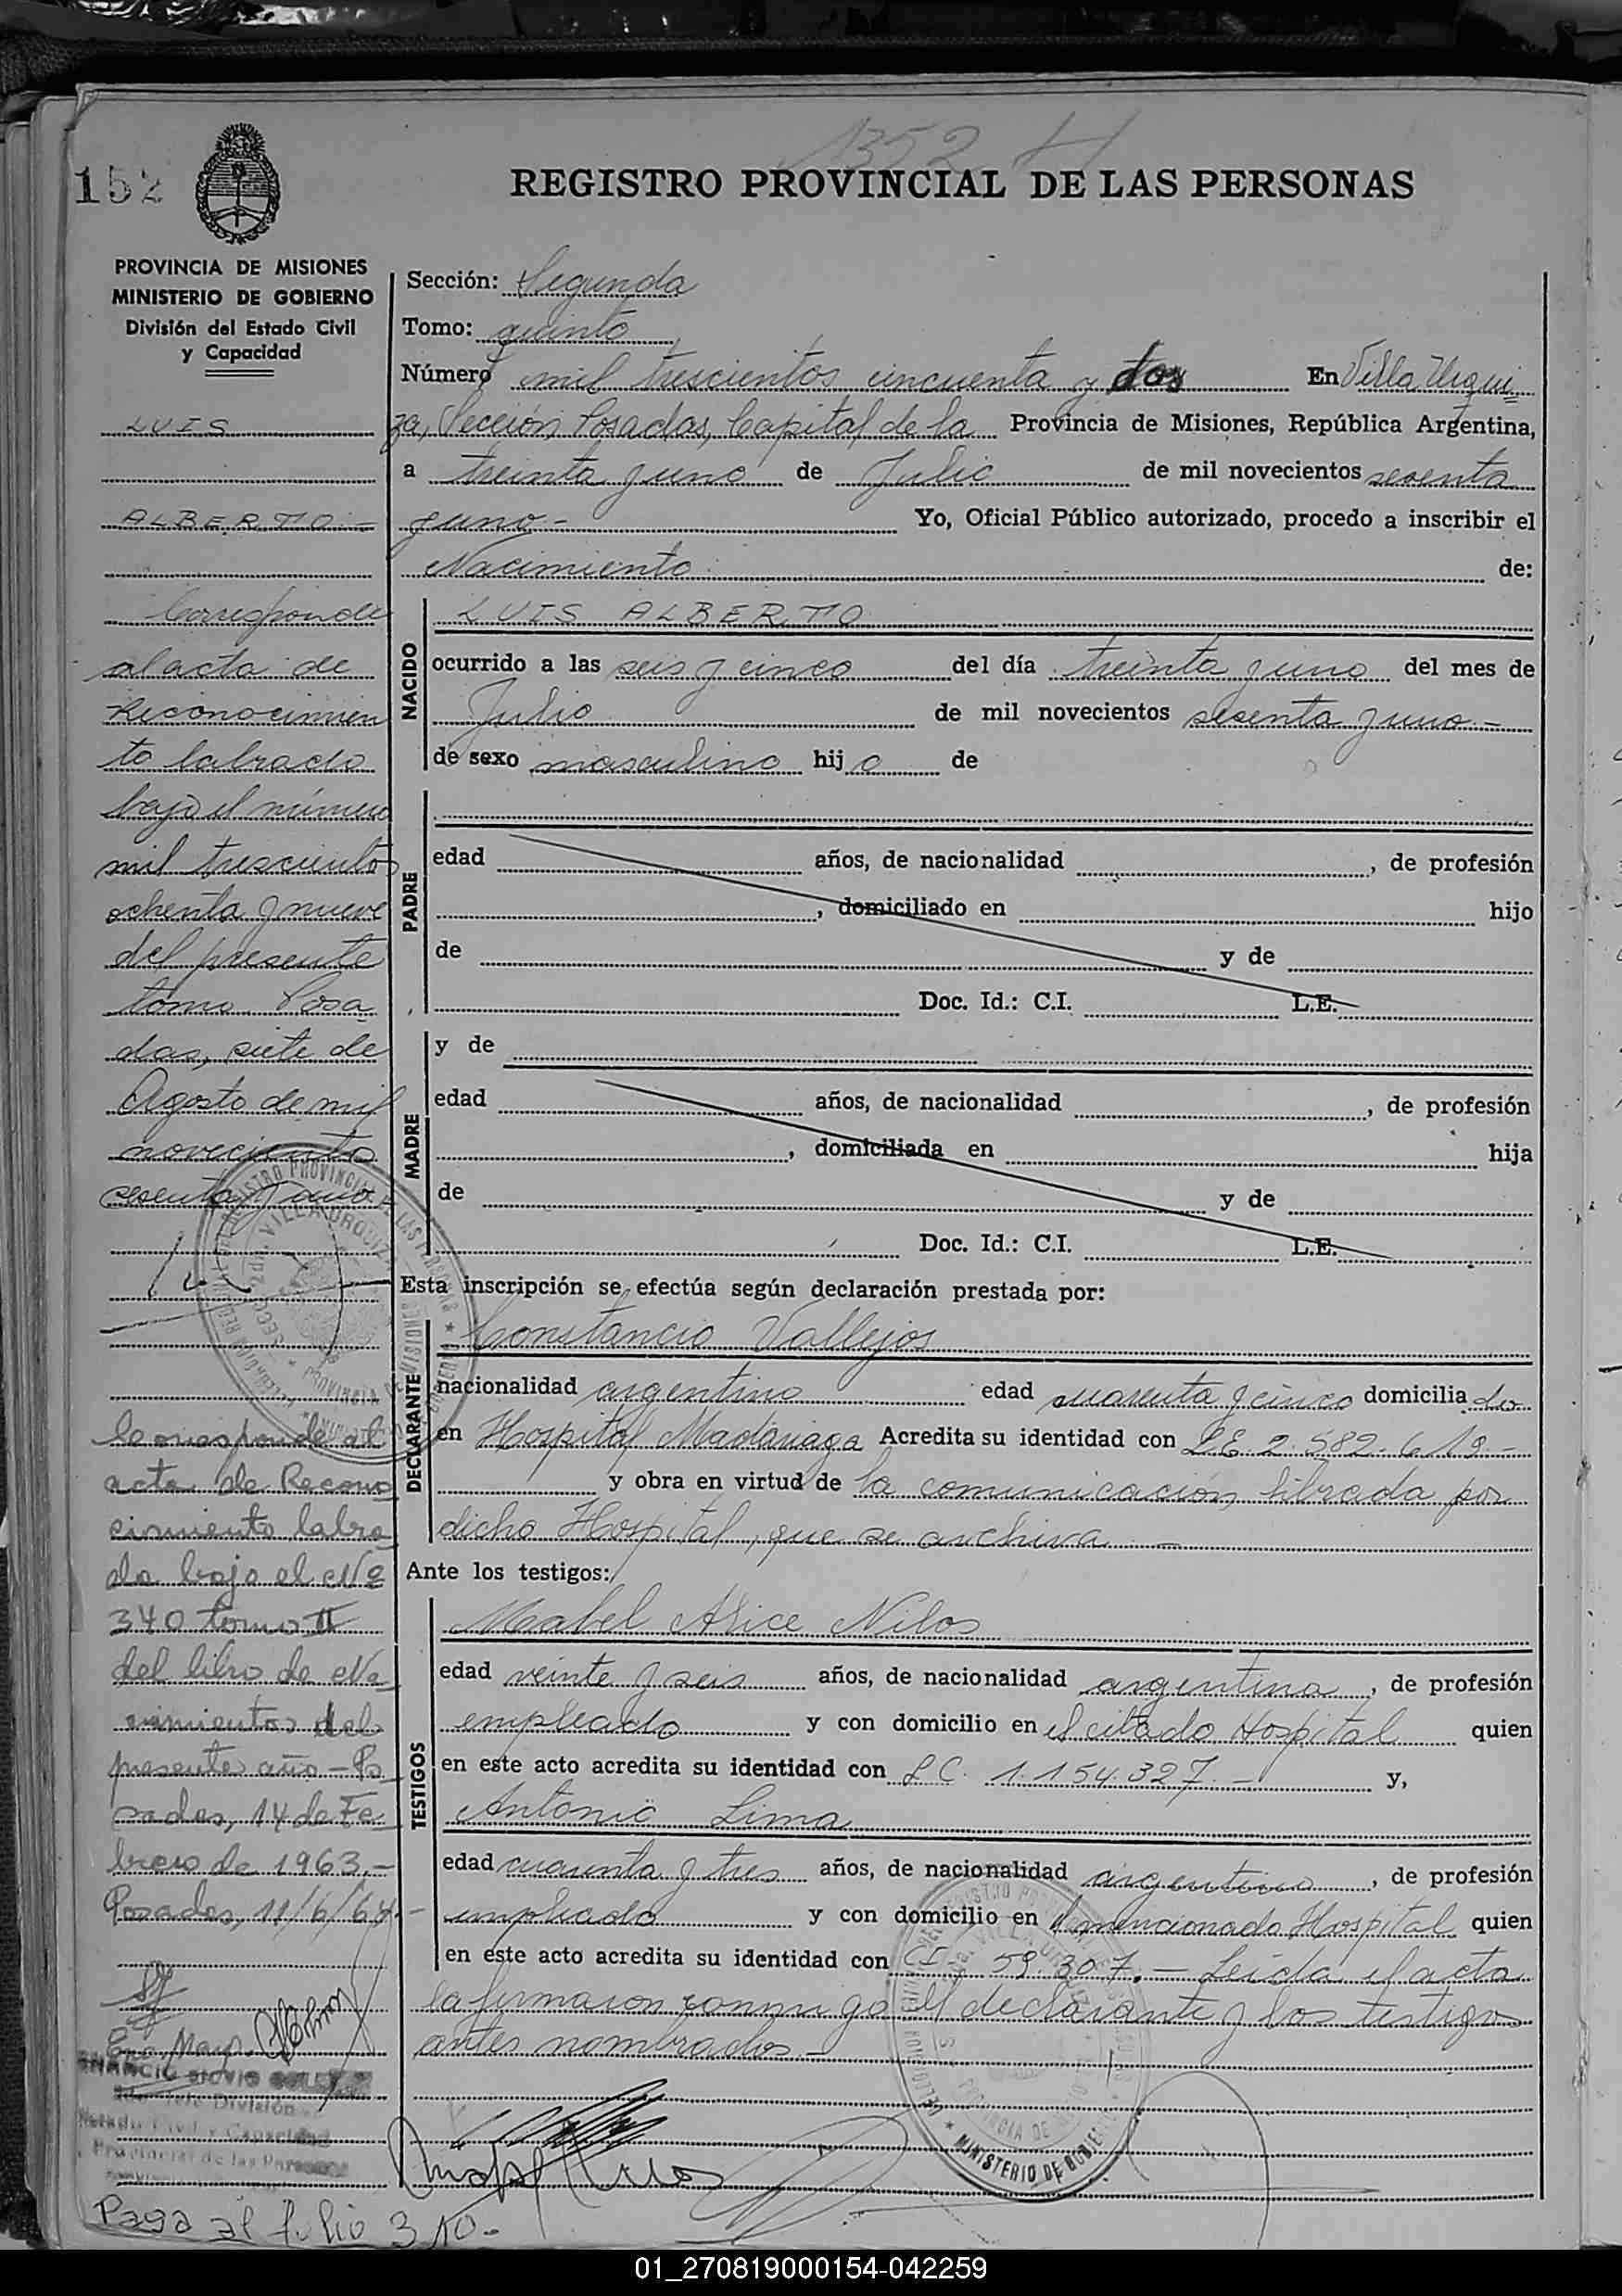 1352 H
152
REGISTRO PROVINCIAL DE LAS PERSONAS
PROVINCIA DE MISIONES
MINISTERIO DE GOBIERNO
División del Estado Civil
y Capacidad
LUIS
ALBERTO.-
Corresponde
al acta de
Reconocimien
to labrado
bajo el número
mil trescientos
ochenta y nueve
del presente
tomo. Posa
das, siete de
Agosto de mil
novecientos
sesenta y uno
Corresponde al
acta de Recono
cimiento labra
do bajo el Nº
340 tomo II
del libro de Na
cimientos del
presente año - Po
sadas, 14 de Fe
brero de 1963.-
Posadas, 11/6/64.-
División
Estado Civil y Capacidad
Provincial de las Personas
Pasa al folio 310.-
Sección: Segunda
Tomo: quinto
Número mil trescientos cincuenta y dos En Villa Urqui
za, Sección Posadas, Capital de la Provincia de Misiones, República Argentina,
a treinta y uno de Julio de mil novecientos sesenta
y uno.- Yo, Oficial Público autorizado, procedo a inscribir el
Nacimiento de:
NACIDO
LUIS ALBERTO
ocurrido a las seis y cinco del día treinta y uno del mes de
Julio de mil novecientos sesenta y uno.-
de sexo masculino hijo de
PADRE
edad años, de nacionalidad , de profesión
, domiciliado en hijo
de y de
Doc. Id.: C.I. L.E.
MADRE
y de
edad años, de nacionalidad , de profesión
, domiciliada en hija
de y de
Doc. Id.: C.I. L.E.
Esta inscripción se efectúa según declaración prestada por:
DECLARANTE
Constancio Vallejos
nacionalidad argentino edad cuarenta y cinco domiciliado
en Hospital Madariaga Acredita su identidad con L.E. 2.582.619.-
y obra en virtud de la comunicación librada por
dicho Hospital, que se archiva.-
Ante los testigos:
TESTIGOS
Mabel Alice Nilos
edad veinte y seis años, de nacionalidad argentina, de profesión
empleado y con domicilio en el citado Hospital quien
en este acto acredita su identidad con L.C. 1.154.327.- y,
Antonio Lima
edad cuarenta y tres años, de nacionalidad argentino, de profesión
empleado y con domicilio en el mencionado Hospital quien
en este acto acredita su identidad con C.I. 59.307.- Leída el acta
la firmaron conmigo el declarante y los testigos
antes nombrados.-
MINISTERIO DE GOBIERNO
01_270819000154-042259